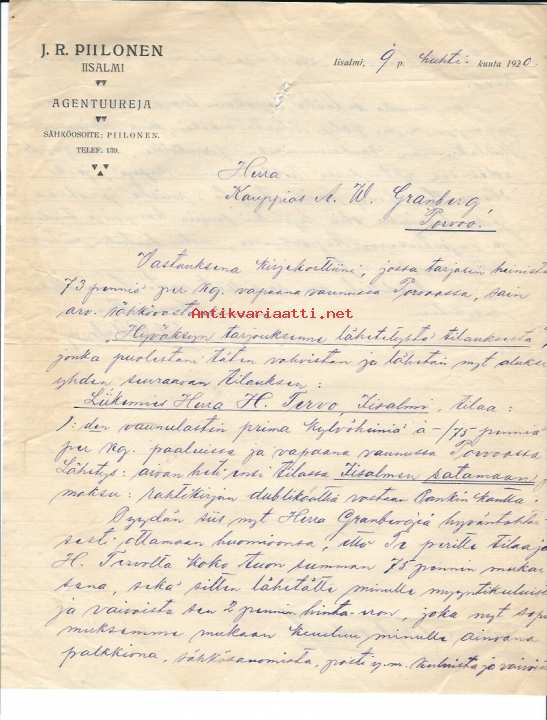 J. R. PIILONEN
IISALMI
AGENTUUREJA
SÄHKÖOSOITE: PIILONEN.
TELEF: 139.
Iisalmi, 9 p. huhti- kunta 1920.
Herra
Kauppias A. W. Granberg,
Porvoo.
Vastauksena kirjekorttiini, jossa tarjosin heinistä
73 penniä per kg. vapaana vaunussa Porvoossa, sain
arv. sähkövastauksen
Antikvariaatti.net
"Hyväksyn tarjouksenne lähetelystä tilauksesta",
jonka puolestani täten vahvistan ja lähetän nyt aluksi
yhden seuraavan tilauksen:
Liikemies Herra H. Tervo, Iisalmi, tilaa:
1: den vaunulastin prima kylvöheiniä à -/75 penniä
per kg. paaluissa ja vapaana vaunussa Porvoossa
Lähetys: aivan heti ensi tilassa Iisalmen satamaan,
maksu: rahtikirjan dublikaattia vastaan Pankin kautta.
Pyydän siis nyt Herra Granbergia hyväntahtoi
sesti ottamaan huomioonsa, että Te peritte tilaaja
H. Tervolta koko tuon summan 75 pennin mukai
sena, sekä sitten lähetätte minulle myyntikuluista
ja vaivoista sen 2 pennin hinta-eron, joka nyt sopi
muksemme mukaan kuuluu minulle ainoana
palkkiona, sähkösanomista, posti y.m. kuluista ja